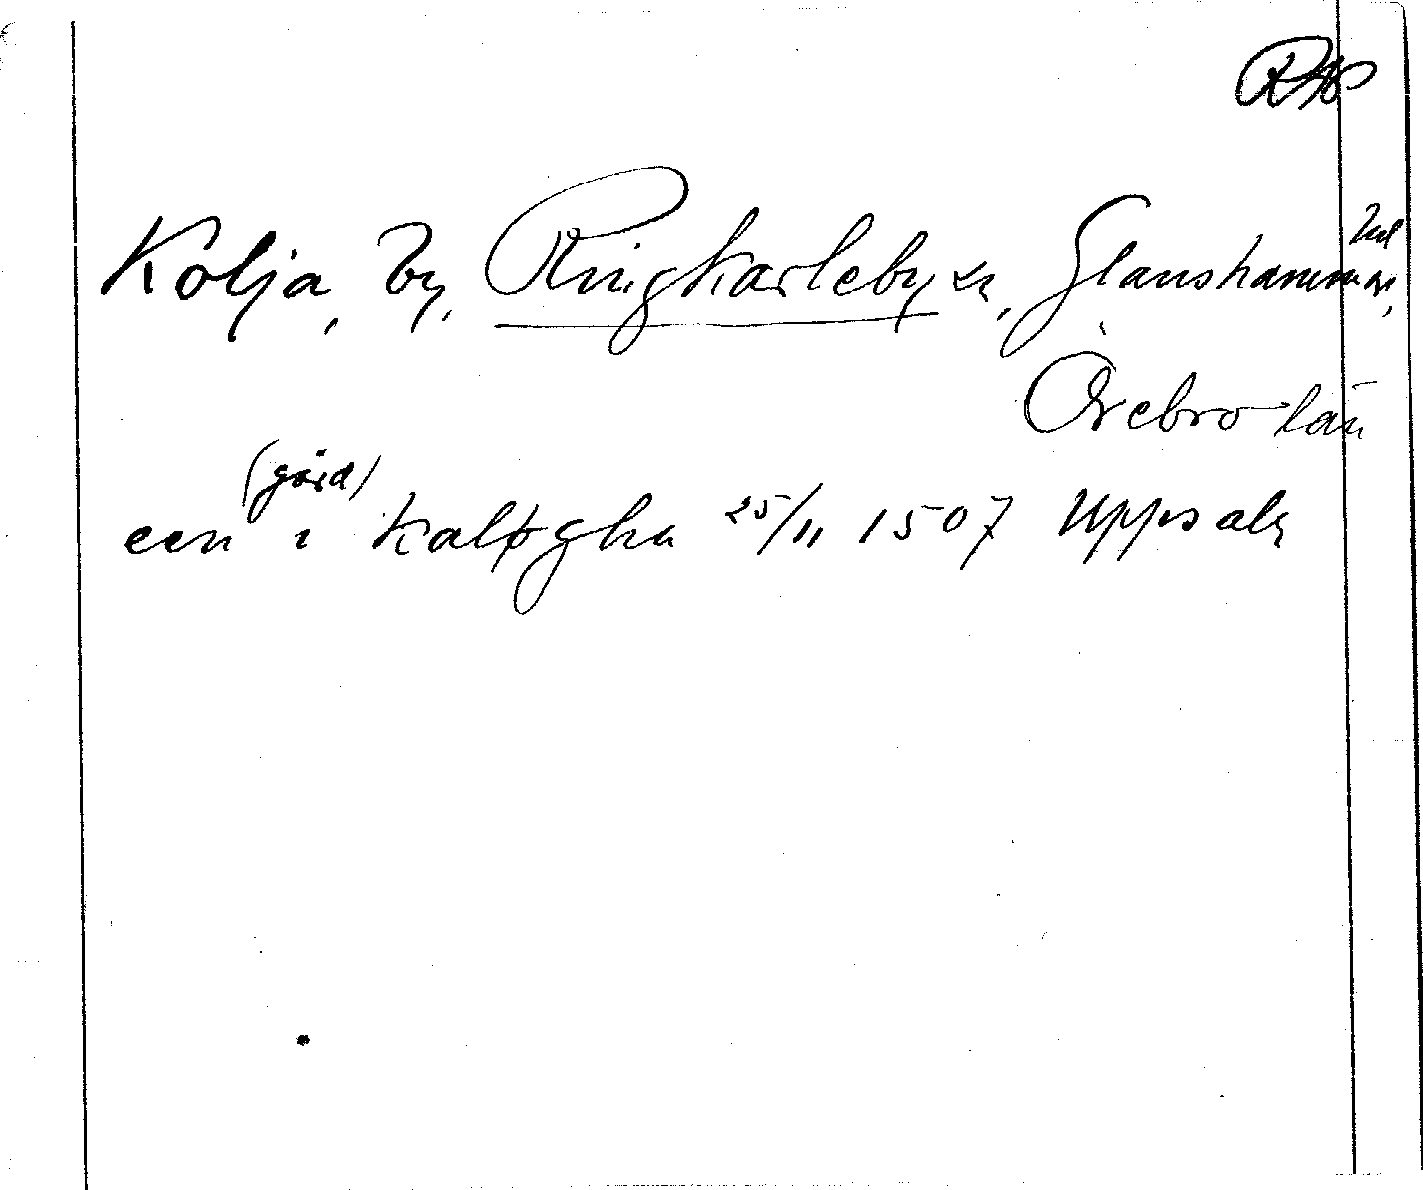 RAP
Kolja, by, Ringkarleby sn, Glanshammar hd,
Örebro län
een (gård) i Kaløgha 25/11 1507 Uppsala